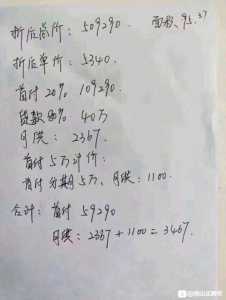 折后总价：509290. 面积：95.37
折后单价：5340.
首付20% 109290
贷款80% 40万
月供：2367
首付5万计价：
首付分期5万，月供：1100.
合计：首付59290
月供：2367+1100=3467.